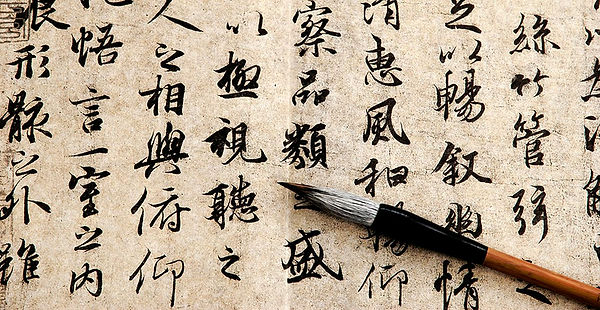 絲竹管弦之
足以暢叙幽情
清惠風和暢仰
察品類之盛
以極視聽之
人之相與俯仰
悟言一室之内
形骸之外雖